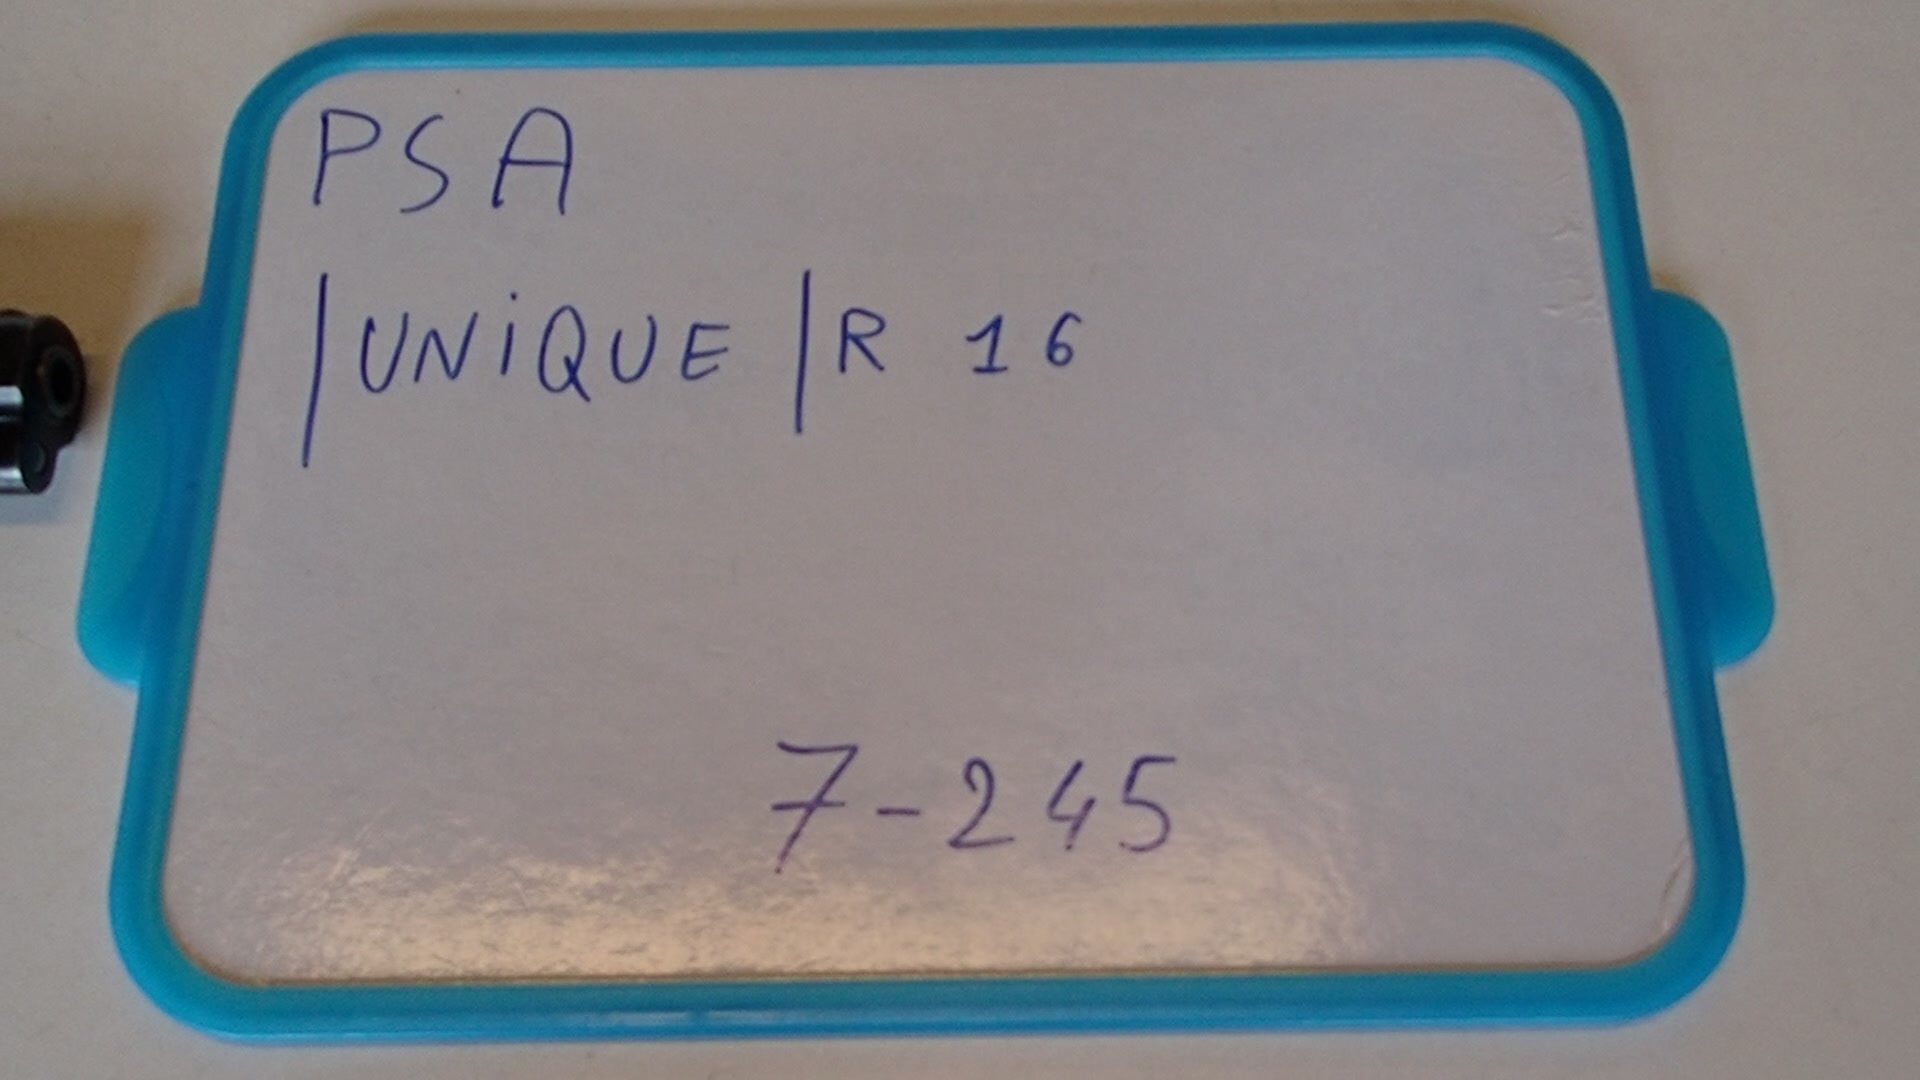 PSA
/UNiQUE /R 16
7-245